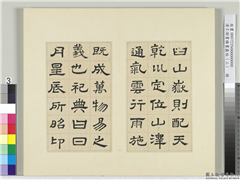 曰山嶽則配天
乾巛定位山澤
通氣雲行雨施
既成萬物易之
義也祀典曰日
月星辰所昭卬
3